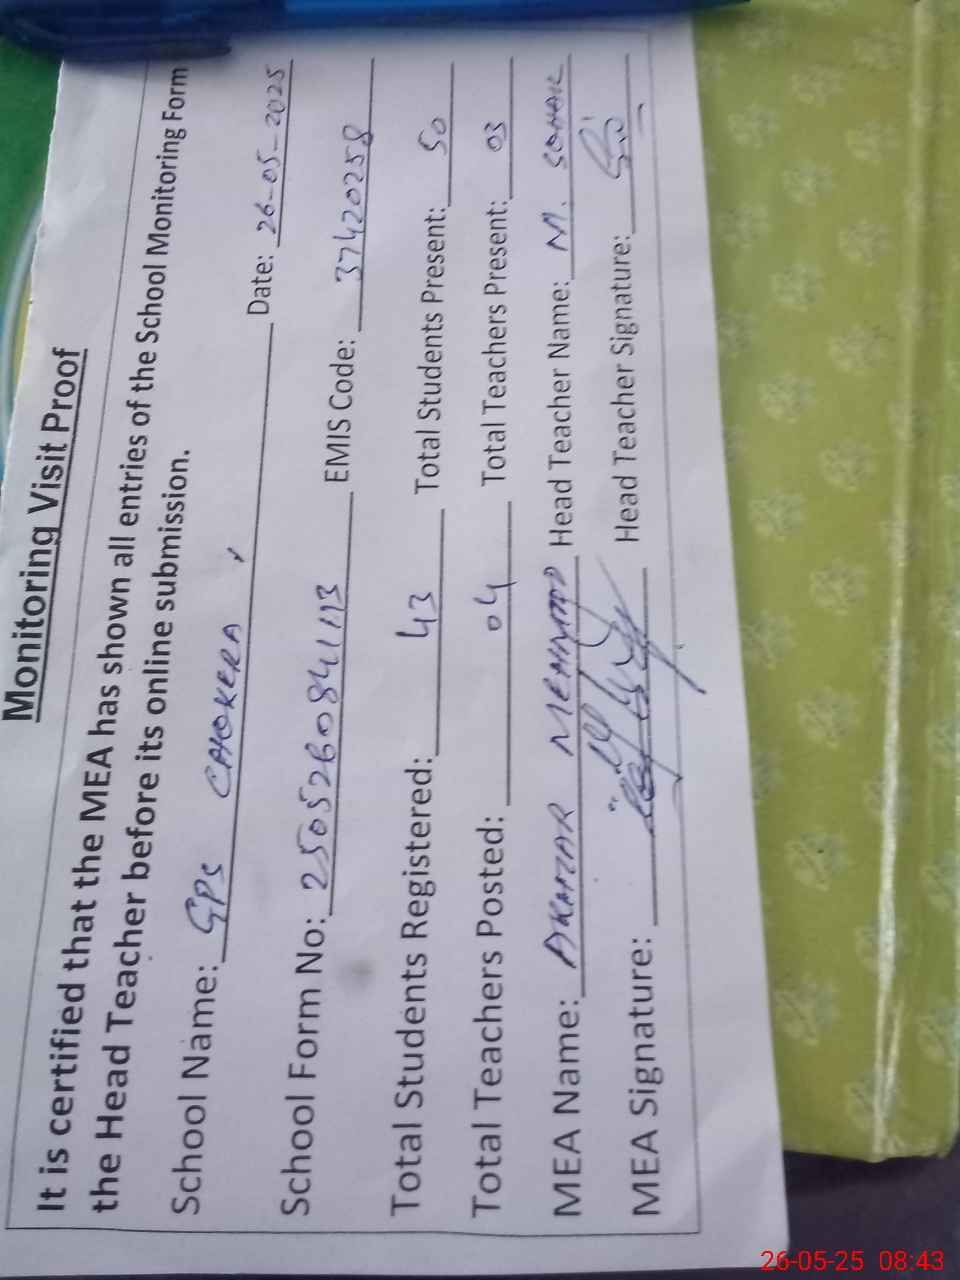 Monitoring Visit Proof
It is certified that the MEA has shown all entries of the School Monitoring Form
the Head Teacher before its online submission.
School Name: GPS CHOKERA Date: 26-05-2025
School Form No: 250526084113 EMIS Code: 37420258
Total Students Registered: 43 Total Students Present: 50
Total Teachers Posted: 04 Total Teachers Present: 03
MEA Name: AKHTAR MEHMOOD Head Teacher Name: M. SOHAIL
MEA Signature: Head Teacher Signature:
26-05-25 08:43